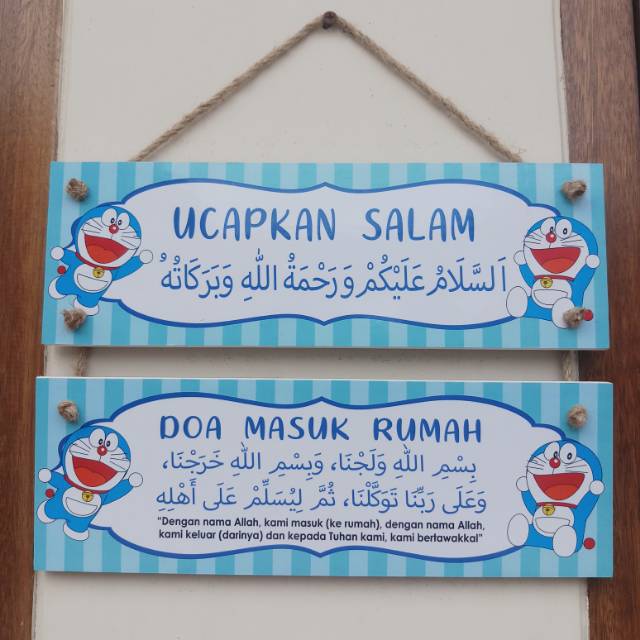 UCAPKAN SALAM
اَلسَّلَامُ عَلَيْكُمْ وَرَحْمَةُ اللّٰهِ وَبَرَكَاتُهُ
DOA MASUK RUMAH
بِسْمِ اللّٰهِ وَلَجْنَا، وَبِسْمِ اللّٰهِ خَرَجْنَا،
وَعَلَى رَبِّنَا تَوَكَّلْنَا، ثُمَّ لِيُسَلِّمْ عَلَى أَهْلِهِ
"Dengan nama Allah, kami masuk (ke rumah), dengan nama Allah,
kami keluar (darinya) dan kepada Tuhan kami, kami bertawakkal"